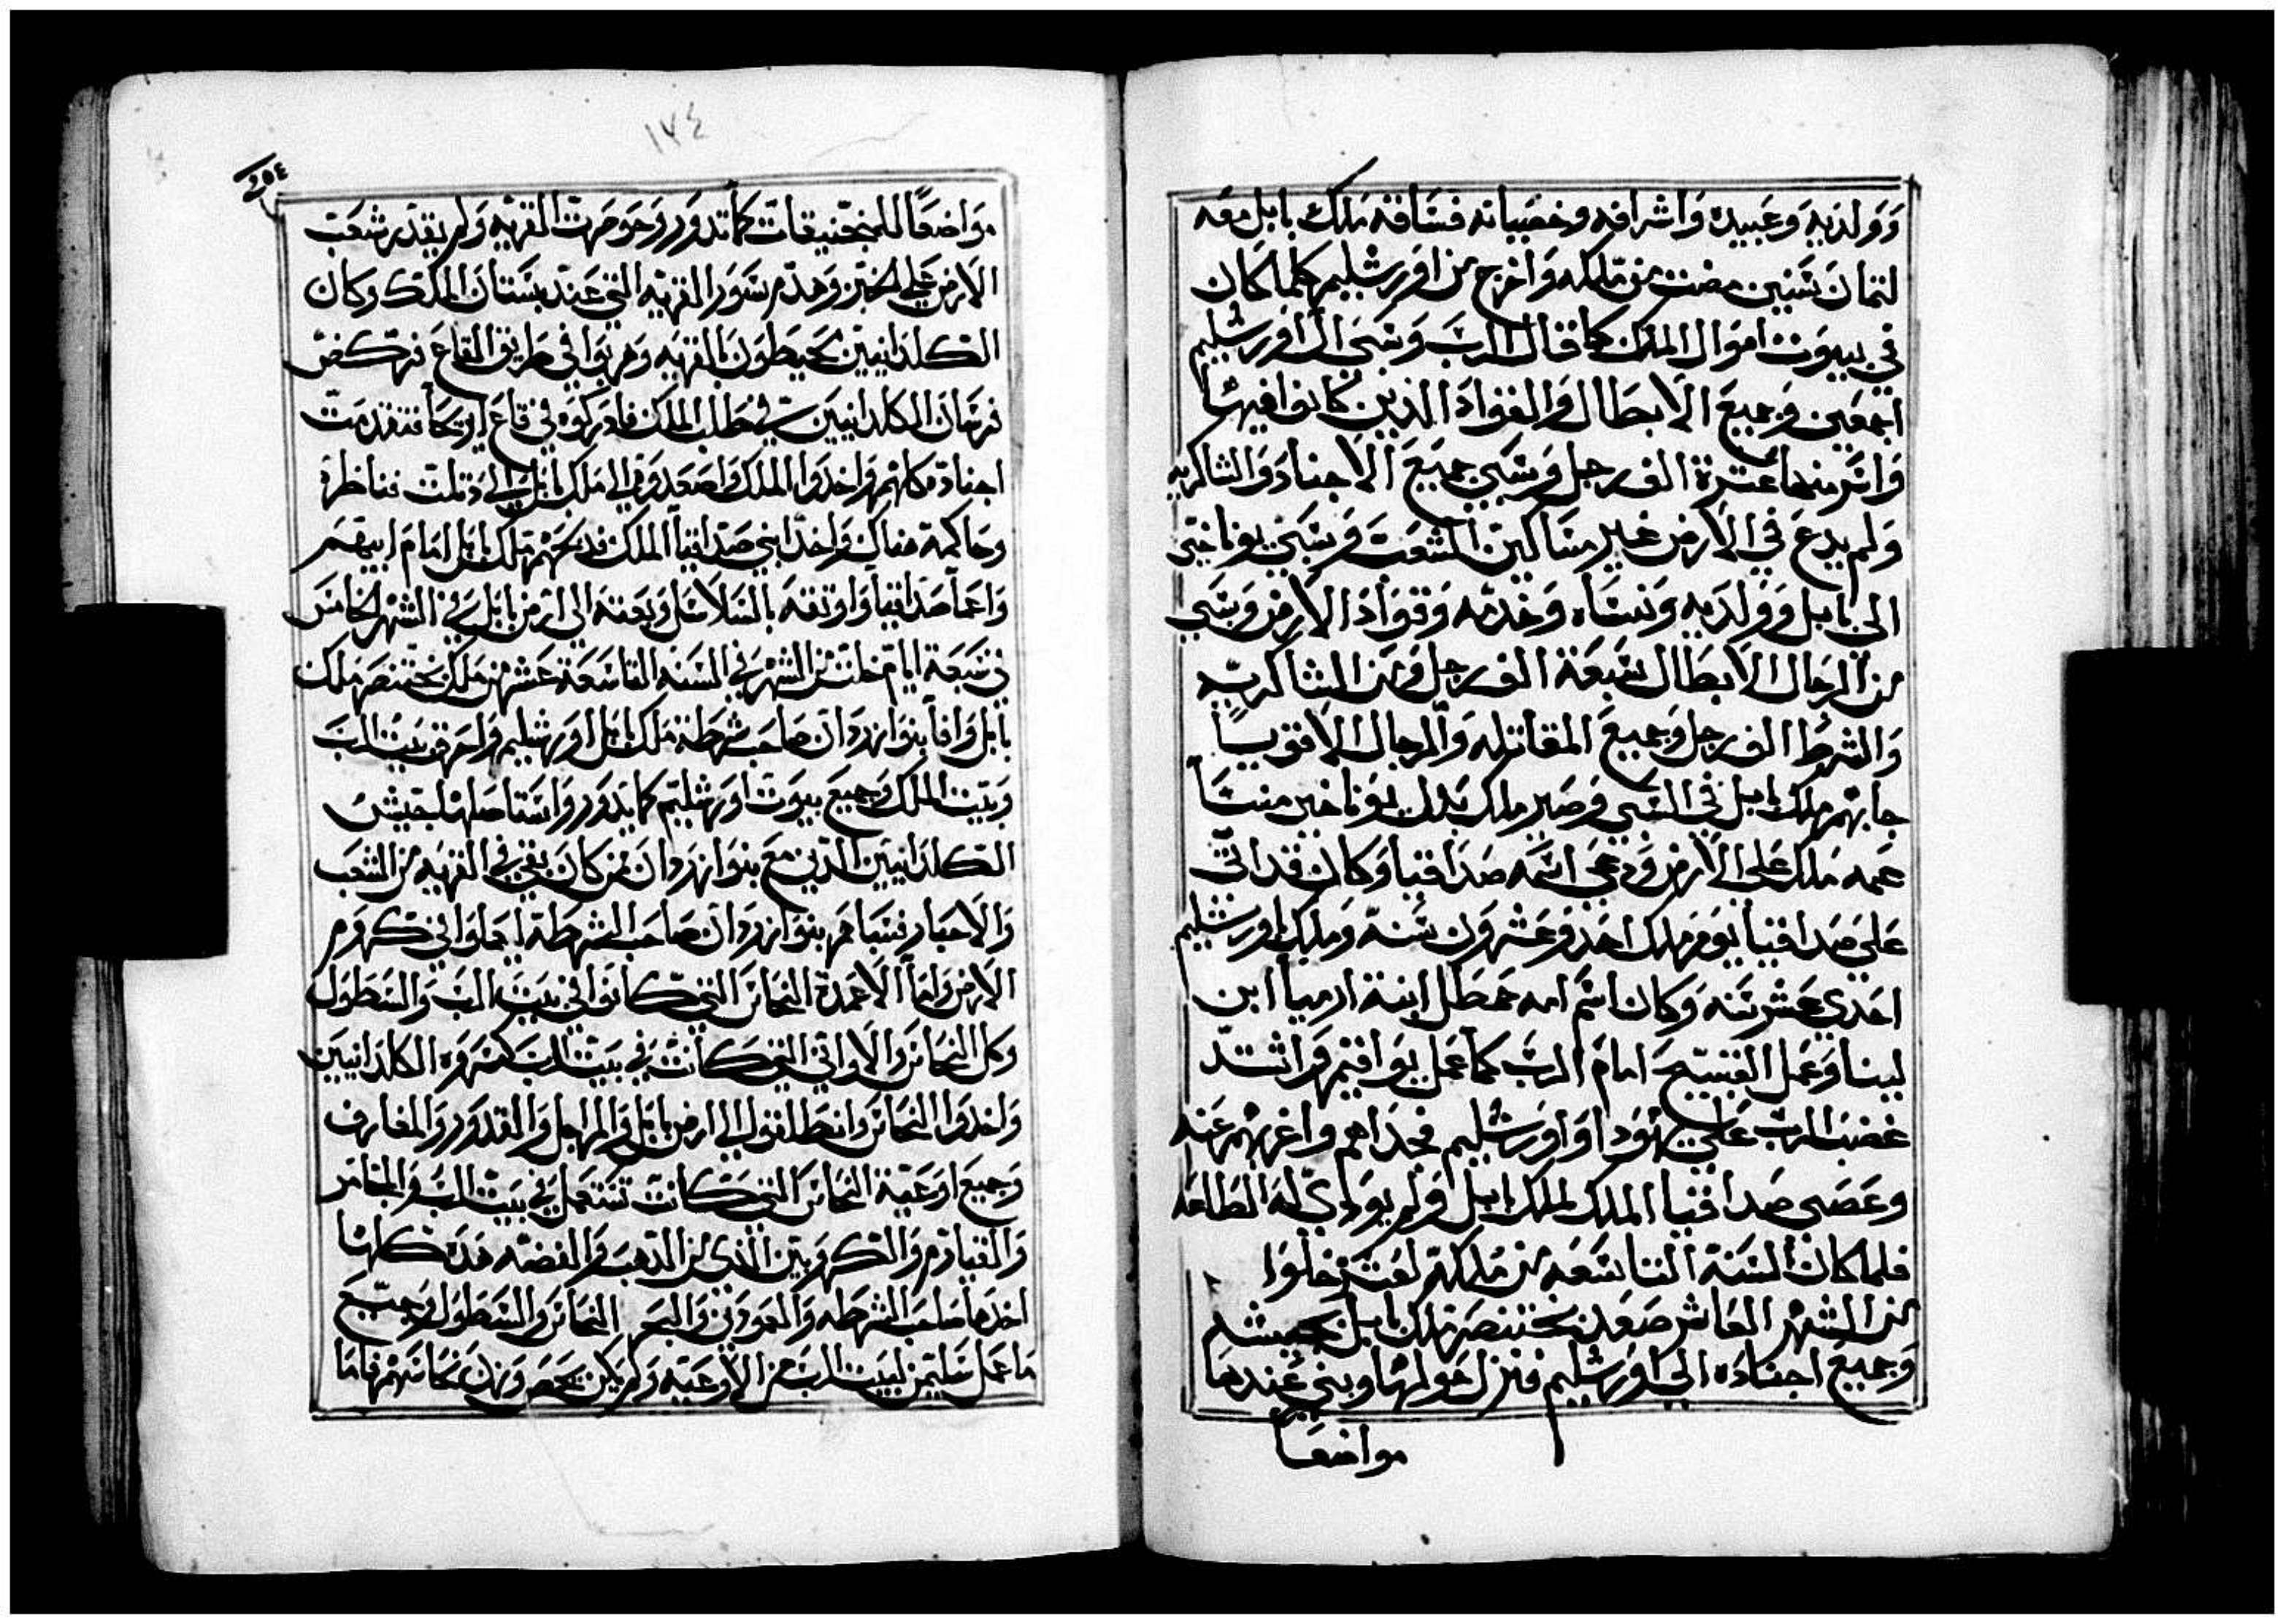 وَوَلديه وَعَبيده وَاشرافه وخصيانه فسَاقه مَلك بابل معَه
لتمان سَنين مضت من مَلكه وَاخرج من اورشليم كلما كان
في بيوت اموَال الملك كما قال الربَ وَسَبى ال اورشليم
اجمعين وَجميعَ الابطال وَالقوادَ الذين كانوا فيها
وَاسَر منها عَشرة الف رجل وَسَبي جميَعَ الاجنادَ وَالشاكريه
وَلم يدعَ في الارض غير مسَاكين الشعَب وَسَبي يوناخين
الى بابل وَوَلديه وَنسَاه وَخدمه وَقوادَ الارض وَسَبي
من الرجال الابطال سَبعَة الف رجل وَمن الشاكريه
وَالشرط الف رجل وَجميعَ المقاتله وَالرجال الاقويا
جابهم ملك بابل في السَبي وَصير ملك بدل يوناخين متنيَا
عَمه مَلك عَلى الارض وَدعي اسَمه صَداقيا وَكان قد اتي
عَلي صَداقيا يوم مَلك احَد وَعَشرون سَنه وَملك باورشليم
احَدي عَشر سَنه وَكان اسَم امه حمطل ابنة ارميا ابن
لبنا وَعَمل القبيح امامَ الربَ كما عَمل يوَاقيم وَاشتد
غضب الربَ عَلي يهودا وَاورَشليم فخذاهم وَاغربهم عَنه
وعَصى صَداقيا الملك لملك بابل وَلم يودي له الطاعَه
فلما كان السَنة التاسَعَه من مَلكه لعَشر خلوَا
من الشهر العَاشر صَعَد بختنصر ملك بابل بجيشه
وَجميعَ اجنادَه الي اورَشليم فنزل حَولها وبني عَندها
مواضعَا
١٧٤
٢٥٤
موَاضعَا للمنجنيقات كما تدوَر وَحوصرت القريه وَلم يقدر شعَب
الارض عَلي الخبز وَهدم سَور القريه التي عَند بسَتان الملك وَكان
الكلدانيين يحيطون بالقريه وَهربوَا في طريق القاعَ فركض
فرسَان الكلدانيين في طلب الملك فادركوَه في قاعَ اريحَا فتقدمت
اجناده كلهم وَاخذوا الملك وَاصعَدوَه الي مَلك بابل الي دَبلت فناظره
وحَاكمه هناك وَاخذ ابني صَداقيا الملك فذبحَهم مَلك بابل امامَ ابيهم
وَاعَما صَداقيا وَاوثقه بالسَلاسَل وَبعَته الي ارض بابل في الشهر الخامسَ
في سَبعَة ايام خلت من الشهر في السَنة التاسَعَة عَشر من مَلك بختنصر مَلك
بابل وَافا بنوازردَان صَاحَب شرطة مَلك بابل اورشليم وَاحرق بيَت الربَ
وَبيَت الملك وَجميعَ بيوَت اورشليم كما يدوَر وَاسَتاصلها بجيش
الكلدانيين الذين معَ بنوازردَان من كان بقي في القريه من الشعَب
وَالاحبار فسَباهم بنوازردَان صَاحَب الشرطة ليعملوَا في كروَم
الارض وَاما الاعَمدة النحاسَ التي كانوا في بيَت الربَ وَالسَطول
وكل النحاسَ وَالاوَاني التي كانت في بيَت الربَ كسَروَه الكلدانيين
وَاخذوا النحاسَ وَانطلقوا الي ارض بابل وَالمراجل وَالقدوَر وَالمغارف
وَجميعَ اوعَية النحاسَ التي كانت تسَتعمل في بيَت الربَ وَالمجامر
وَالقيادَم وَالكروبين الذي من الذهب وَالفضه هَذه كلها
اخذها صَاحَب الشرطه وَالعَمودَين وَالبحر النحاسَ وَالسَطول وَجميَعَ
ما عَمل سَليمن لبيَت الربَ من الاوعَيه وَلم يكن يحصَى وَزن نحاسَهم فاما